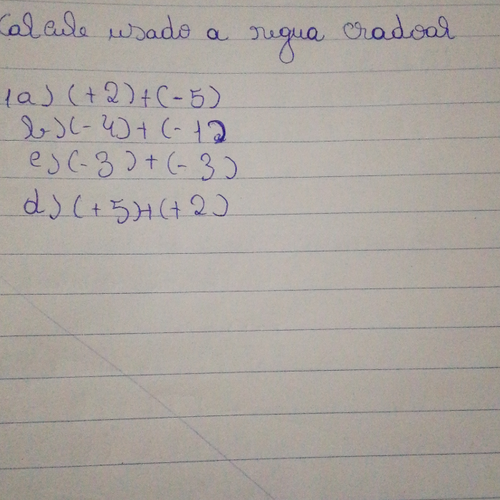 Calcule usado a regua cradoal
1a) (+2)+(-5)
b) (-4)+(-1)
c) (-3)+(-3)
d) (+5)+(+2)